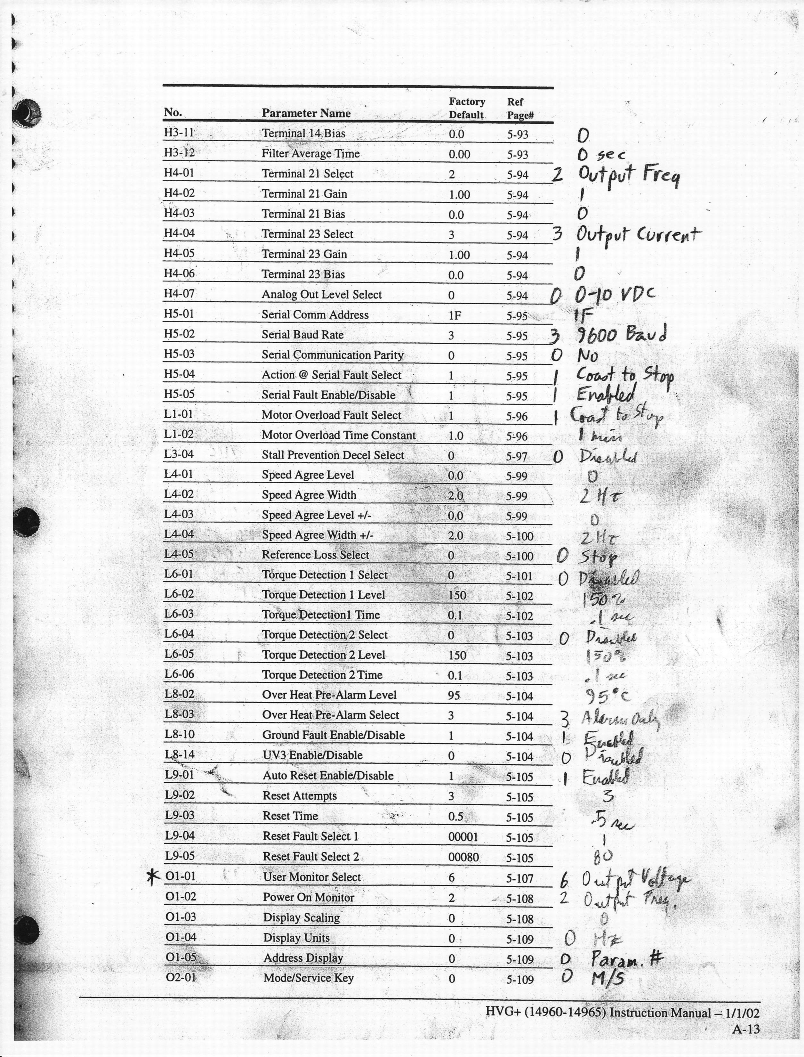 No. Parameter Name Factory Default Ref Page#
H3-11 Terminal 14 Bias 0.0 5-93 0
H3-12 Filter Average Time 0.00 5-93 0 sec
H4-01 Terminal 21 Select 2 5-94 2 Output Freq
H4-02 Terminal 21 Gain 1.00 5-94 1
H4-03 Terminal 21 Bias 0.0 5-94 0
H4-04 Terminal 23 Select 3 5-94 3 Output Current
H4-05 Terminal 23 Gain 1.00 5-94 1
H4-06 Terminal 23 Bias 0.0 5-94 0
H4-07 Analog Out Level Select 0 5-94 0 0-10 VDC
H5-01 Serial Comm Address 1F 5-95 1F
H5-02 Serial Baud Rate 3 5-95 3 9600 Baud
H5-03 Serial Communication Parity 0 5-95 0 No
H5-04 Action @ Serial Fault Select 1 5-95 1 Coast to Stop
H5-05 Serial Fault Enable/Disable 1 5-95 1 Enabled
L1-01 Motor Overload Fault Select 1 5-96 1 Coast to Stop
L1-02 Motor Overload Time Constant 1.0 5-96 1 min
L3-04 Stall Prevention Decel Select 0 5-97 0 Disabled
L4-01 Speed Agree Level 0.0 5-99 0
L4-02 Speed Agree Width 2.0 5-99 2 Hz
L4-03 Speed Agree Level +/- 0.0 5-99 0
L4-04 Speed Agree Width +/- 2.0 5-100 2 Hz
L4-05 Reference Loss Select 0 5-100 0 Stop
L6-01 Torque Detection 1 Select 0 5-101 0 Disabled
L6-02 Torque Detection 1 Level 150 5-102 150%
L6-03 Torque Detection1 Time 0.1 5-102 .1 sec
L6-04 Torque Detection 2 Select 0 5-103 0 Disabled
L6-05 Torque Detection 2 Level 150 5-103 150%
L6-06 Torque Detection 2 Time 0.1 5-103 .1 sec
L8-02 Over Heat Pre-Alarm Level 95 5-104 95°C
L8-03 Over Heat Pre-Alarm Select 3 5-104 3 Alarm Only
L8-10 Ground Fault Enable/Disable 1 5-104 1 Enabled
L8-14 UV3 Enable/Disable 0 5-104 0 Disabled
L9-01 Auto Reset Enable/Disable 1 5-105 1 Enabled
L9-02 Reset Attempts 3 5-105 3
L9-03 Reset Time 0.5 5-105 .5 sec
L9-04 Reset Fault Select 1 00001 5-105 1
L9-05 Reset Fault Select 2 00080 5-105 80
* O1-01 User Monitor Select 6 5-107 6 Output Voltage
O1-02 Power On Monitor 2 5-108 2 Output Freq.
O1-03 Display Scaling 0 5-108 0
O1-04 Display Units 0 5-109 0 Hz
O1-05 Address Display 0 5-109 0 Param. #
O2-01 Mode/Service Key 0 5-109 0 M/S
HVG+ (14960-14965) Instruction Manual – 1/1/02
A-13